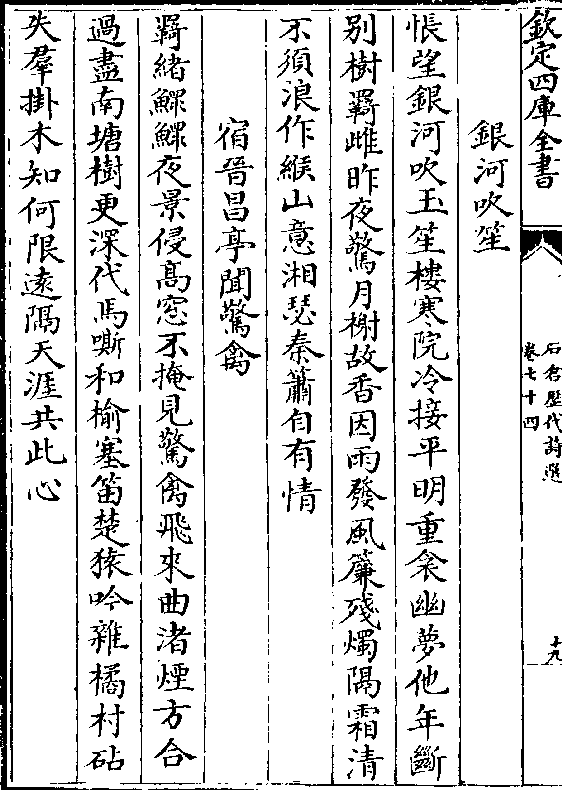 欽定四庫全書
石倉歷代詩選
卷七十四
十九
銀河吹笙
悵望銀河吹玉笙樓寒院冷接平明重衾幽夢他年斷
别樹羇雌昨夜驚月榭故香因雨發風簾殘燭隔霜清
不須浪作緱山意湘瑟秦簫自有情
宿晉昌亭聞驚禽
羇緒鰥鰥夜景侵高窓不掩見驚禽飛來曲渚煙方合
過盡南塘樹更深代馬嘶和榆塞笛楚猿吟雜橘村砧
失羣掛木知何限遠隔天涯共此心